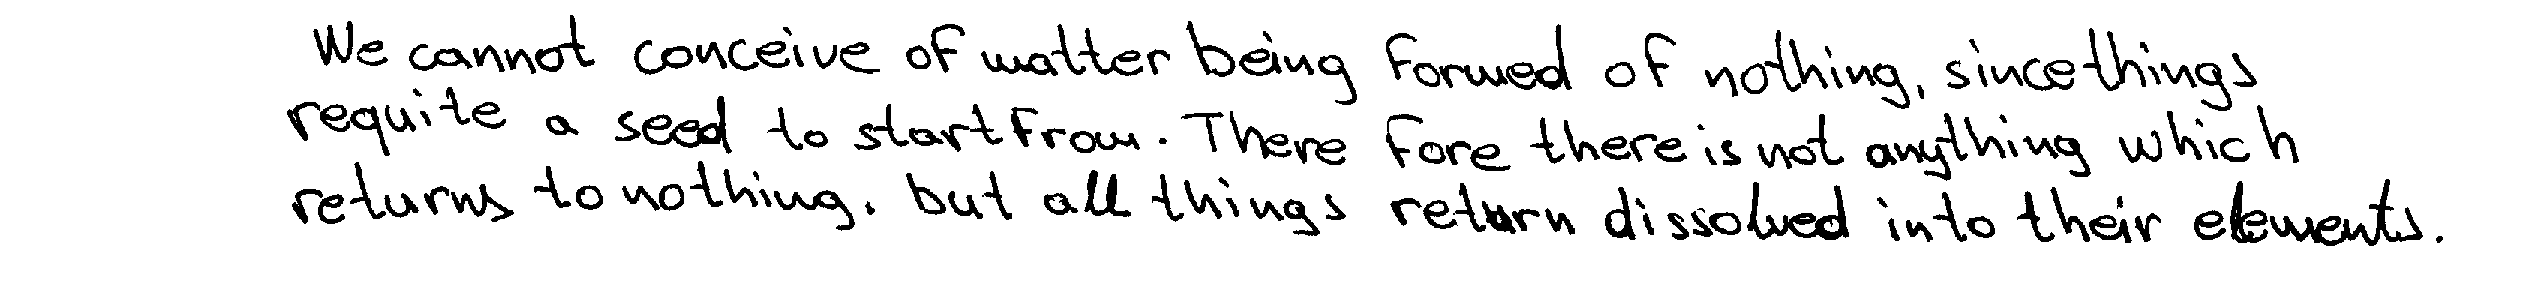 We cannot conceive of matter being formed of nothing, since things
requite a seed to start from. There fore there is not anything which
returns to nothing, but all things return dissolved into their elements.